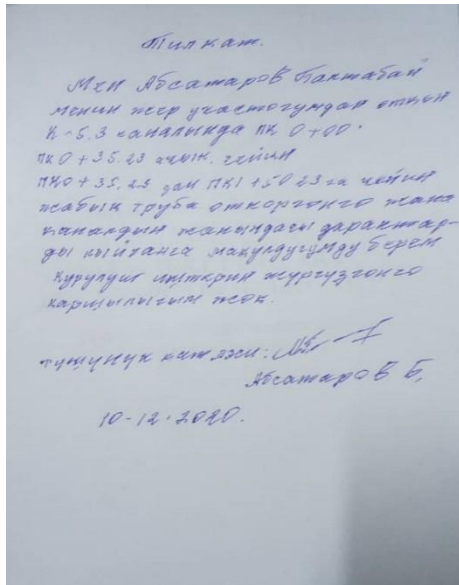 Тилкат.
Мен Абсатаров Бактабай
менин жер участогумдан откон
К-5.3 каналында ПК 0+00.
ПК0+35.23 ачык. чейин
ПК0+35.23 дан ПК1+50 23 га чейин
жабык труба откоргонго жана
каналдын жанындагы дарактар-
ды кыйганга макулдугумду берем
Курулуш иштерин жургузгонго
каршылыгым жок.
тушунук кат жазы:
Абсатаров Б.
10-12-2020.